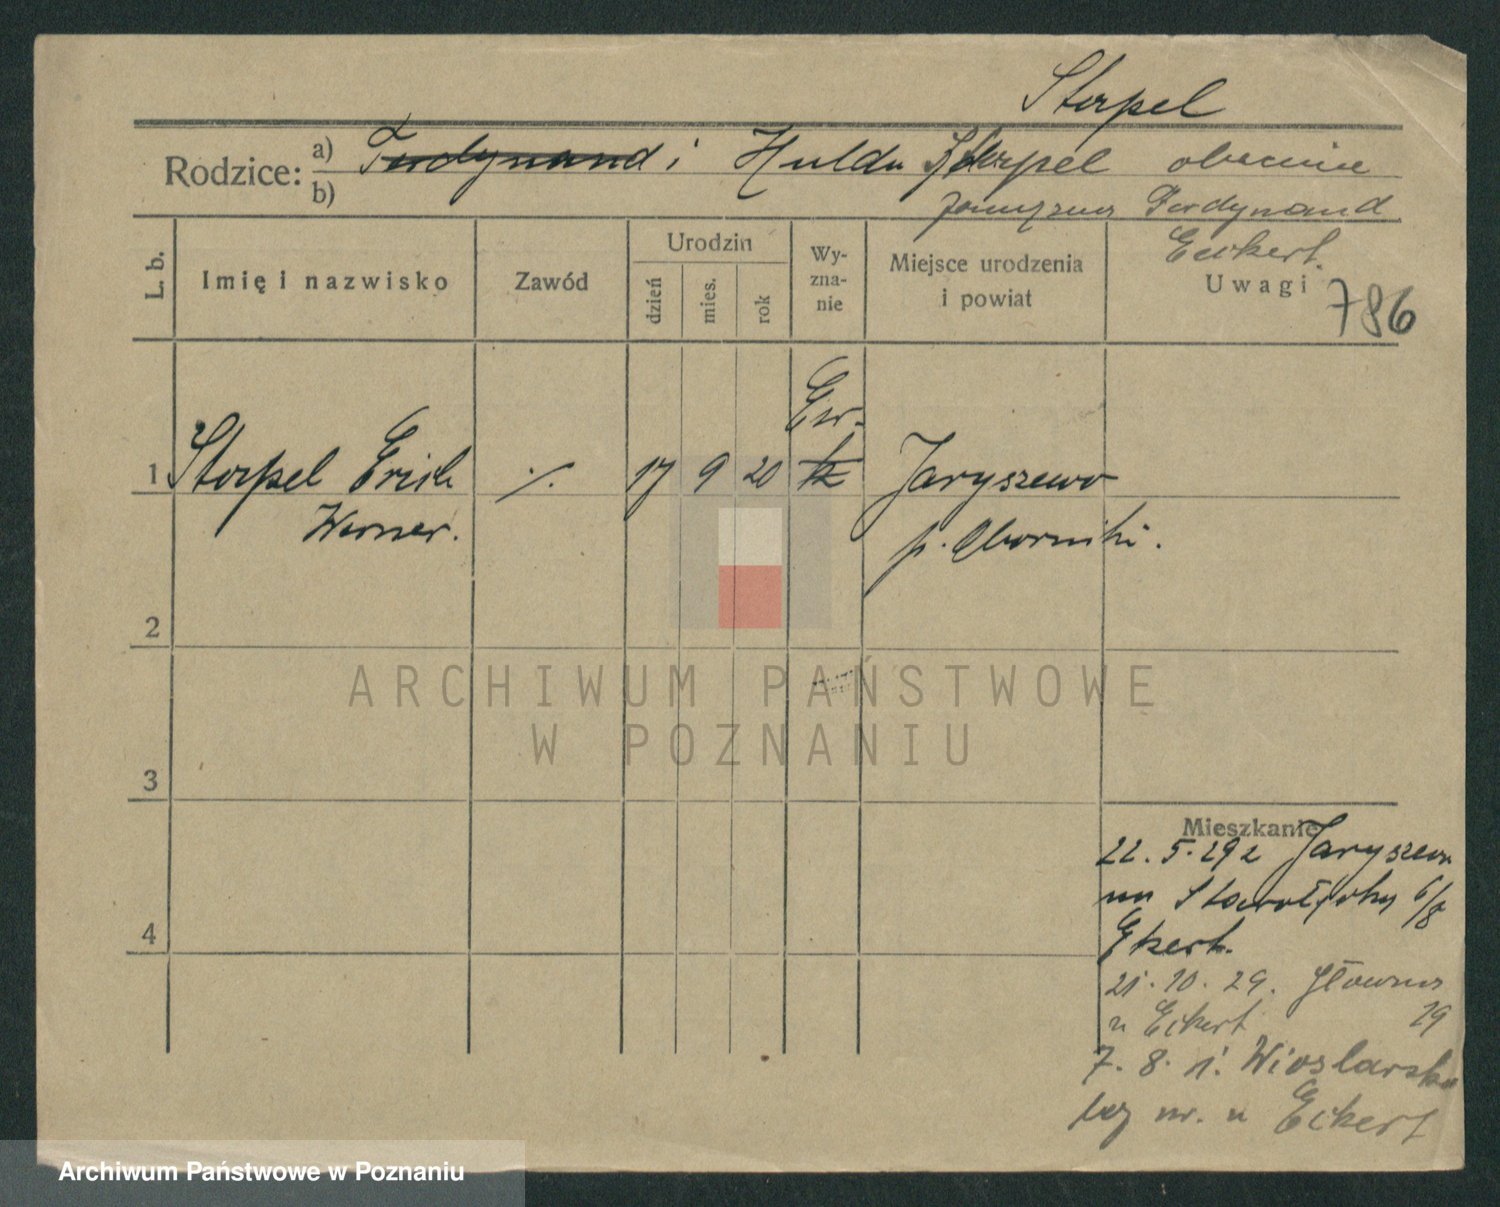 Storpel
Rodzice: a) Ferdynand i Hulda Storpel obecnie
b) Ferdynand
Eckert.
L. b. Imię i nazwisko Zawód Urodzin dzień mies. rok Wy-zna-nie Miejsce urodzenia i powiat Uwagi
786
Ew.
1 Storpel Erich ./. 17 9 20 k Jaryszewo
Werner. p. Oborniki.
2
ARCHIWUM PAŃSTWOWE
W POZNANIU
3
Mieszkanie
22.5.29 z Jaryszewa
na Starołęcką 6/8
Ekert.
21.10.29. Główna
u Eckert 29
7.8. Wioslarska
bez nr. u Eckert
4
Archiwum Państwowe w Poznaniu